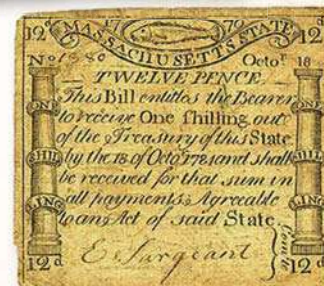 12d 17 79 12d
MASSACHUSETTS STATE
No 1980 Octor 18
TWELVE PENCE.
This Bill entitles the Bearer
to receive One Shilling out
of the Treasury of this State
by the 18 of Octo 1781 and shall
be received for that sum in
all payments, Agreeable
to an Act of said State.
ONE SHIL LING
ONE SHILL ING
E. Sargeant
Comtee
12d 12d